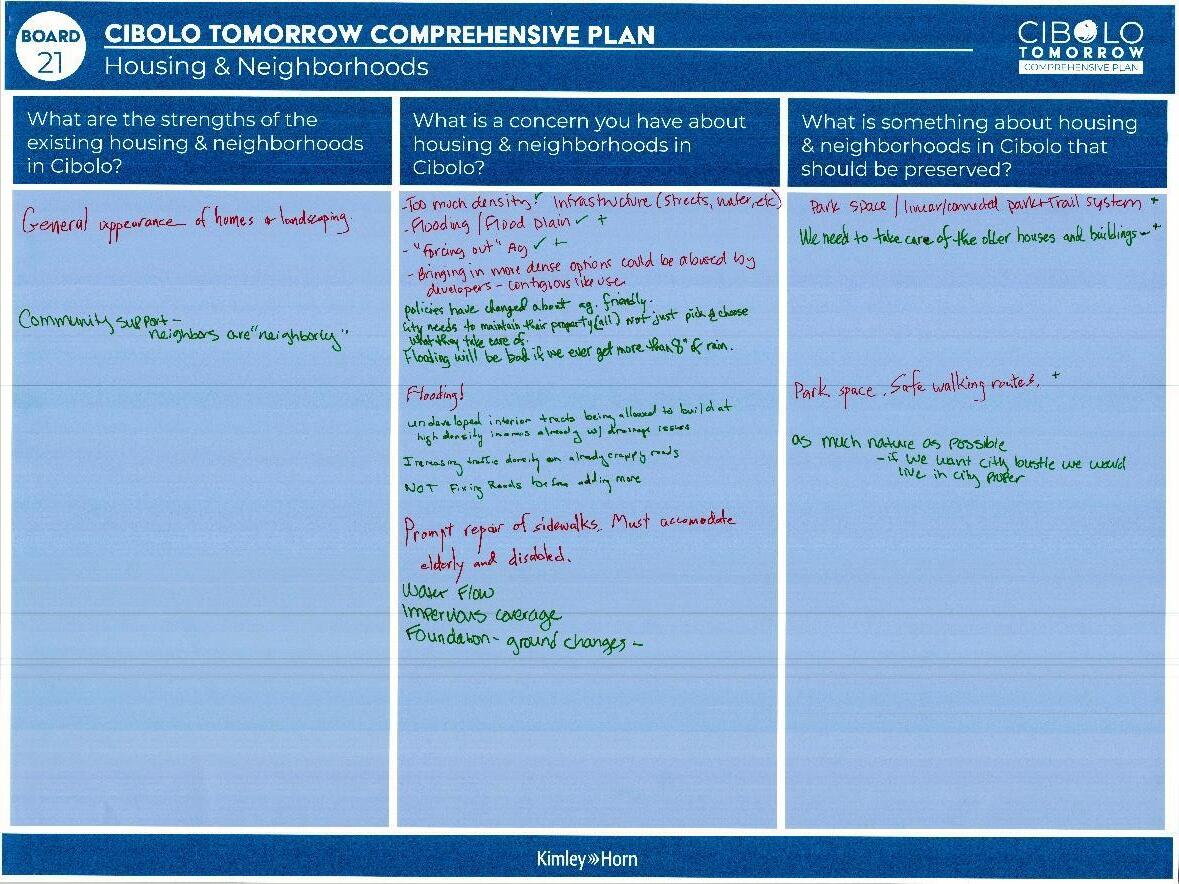 BOARD
21
CIBOLO TOMORROW COMPREHENSIVE PLAN
Housing & Neighborhoods
CIBOLO
TOMORROW
COMPREHENSIVE PLAN
What are the strengths of the
existing housing & neighborhoods
in Cibolo?
General appearance of homes & landscaping.
Community support -
neighbors are "neighborly"
What is a concern you have about
housing & neighborhoods in
Cibolo?
- Too much density! ✓ Infrastructure (streets, water, etc)
- Flooding / Flood Plain ✓ +
- "Forcing out" Ag ✓ +
- Bringing in more dense options could be abused by
developers - contigious like use
policies have changed about ag. friendly.
City needs to maintain their property (all) not just pick & choose
what they take care of.
Flooding will be bad if we ever get more than 8" of rain.
Flooding!
undeveloped interior tracts being allowed to build at
high density in areas already w/ drainage issues
Increasing traffic density on already crappy roads
NOT Fixing Roads before adding more
Prompt repair of sidewalks. Must accomodate
elderly and disabled.
Water Flow
Impervious coverage
Foundation - ground changes -
What is something about housing
& neighborhoods in Cibolo that
should be preserved?
Park space / linear/connected park + Trail system +
We need to take care of the older houses and buildings - +
Park space. Safe walking routes. +
as much nature as possible
- if we want city bustle we would
live in city proper
Kimley»Horn